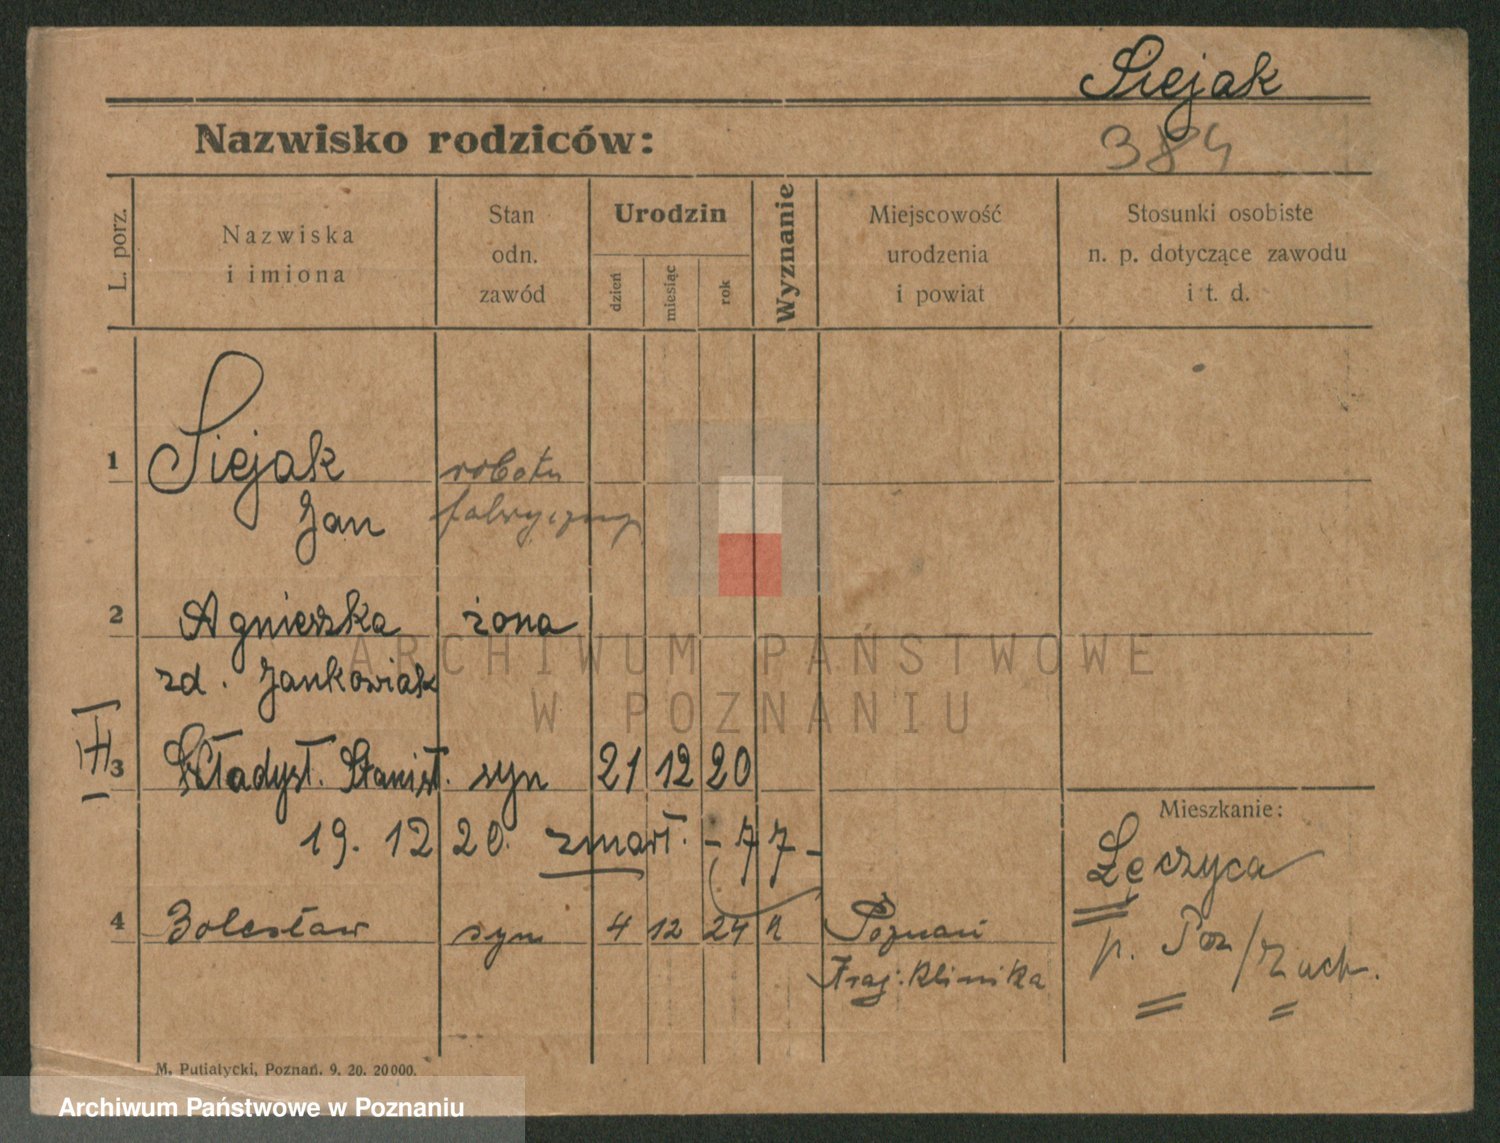 Siejak
Nazwisko rodziców:
384
L. porz.
Nazwiska
i imiona
Stan
odn.
zawód
Urodzin
dzień
miesiąc
rok
Wyznanie
Miejscowość
urodzenia
i powiat
Stosunki osobiste
n. p. dotyczące zawodu
i t. d.
1 Siejak robotn
Jan fabryczny
2 Agnieszka żona
zd. Jankowiak
3 Władysł. Stanisł. syn 21 12 20
19. 12 20. zmarł. - 7 7 -
Mieszkanie:
Łęczyca
p. Poz/Zach.
4 Bolesław syn 4 12 24 k Poznań
Kraj. Klinika
M. Putiatycki, Poznań. 9. 20. 20000.
ARCHIWUM PAŃSTWOWE
W POZNANIU
Archiwum Państwowe w Poznaniu